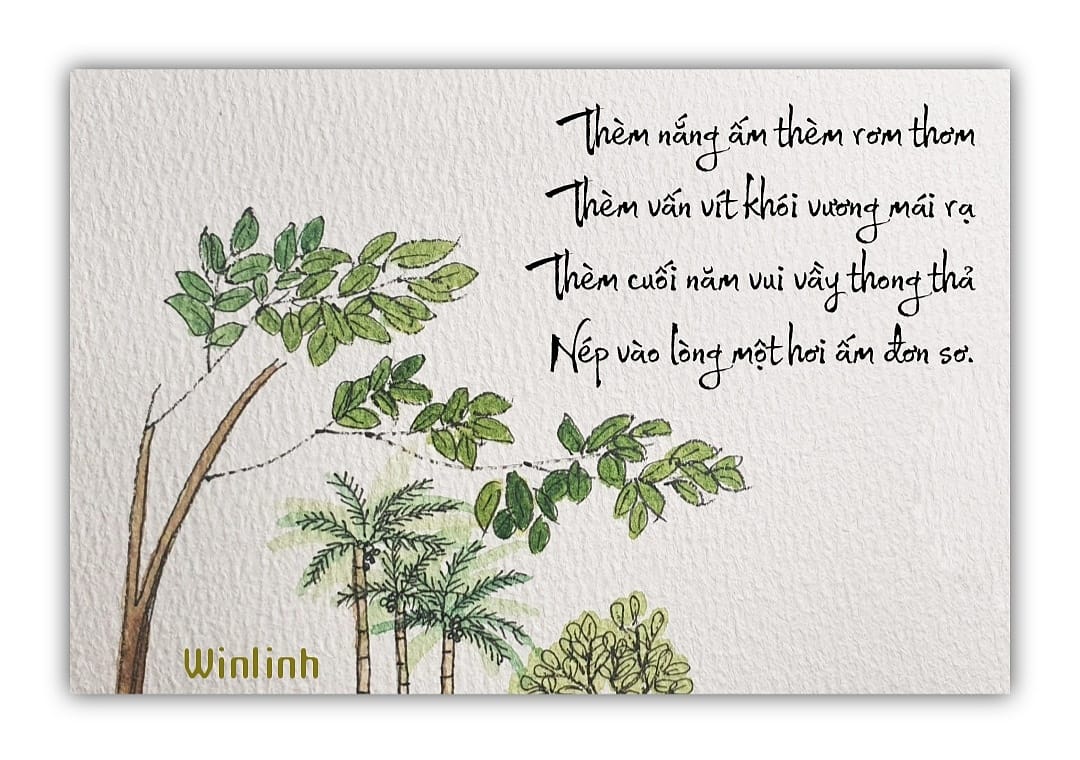 Thèm nắng ấm thèm rơm thơm
Thèm vấn vít khói vương mái rạ
Thèm cuối năm vui vầy thong thả
Nép vào lòng một hơi ấm đơn sơ.
Winlinh